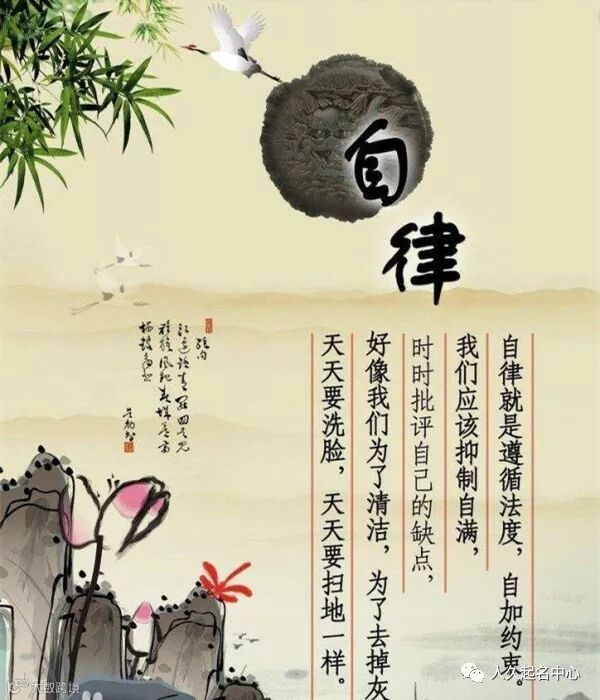 自律
自律就是遵循法度，自加约束。
我们应该抑制自满，
时时批评自己的缺点，
好像我们为了清洁，为了去掉灰
天天要洗脸，天天要扫地一样。
大数跨境
人久起名中心